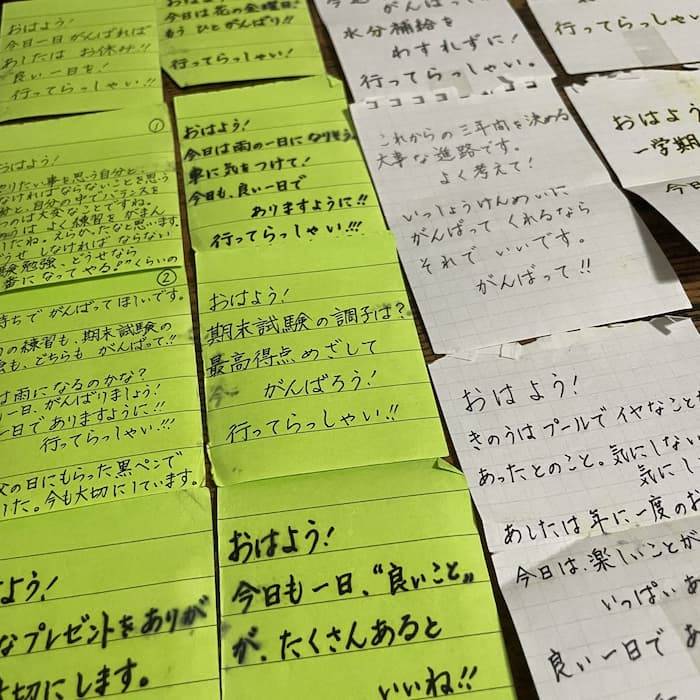 おはよう!
今日一日がんばれば
あしたは お休み!!
良い一日を!
行ってらっしゃい!
おはよう!
今日は花の金曜日!
もう ひとがんばり!!
行ってらっしゃい!!
がんばっ
水分補給を
わすれずに!
行ってらっしゃい。
行ってらっしゃい!!
①
おはよう!
やりたい事を思う自分と、
なければならないことを思う
分と、自分の中でバランスを
つのは大変なことですね。
うは よく練習を がまん
したね。えらかったなと思います。
どうせ しなければ ならない
験勉強、どうせなら
番になってやる!"くらいの
②
持ちで がんばって ほしいです。
の練習も、期末試験の
も、どちらも がんばって!!
は雨になるのかな?
一日、がんばりましょう!
一日で ありますように!!
行ってらっしゃい!!!
父の日にもらった黒ペンで
した。今も大切にしています。
おはよう!
今日は雨の一日に なりそう。
車に気をつけて!
今日も、良い一日で
ありますように!!
行ってらっしゃい!!!
おはよう!
期末試験の調子は?
最高得点めざして
がんばろう!
行ってらっしゃい!!
これからの三年間を決める
大事な進路です。
よく考えて!
いっしょうけんめいに
がんばって くれるなら
それで いいです。
がんばって!!
おはよう
一学期
今日
おはよう!
きのうはプールで イヤなことが
あったとのこと。気にしない
気にし
あしたは 年に一度のお
今日は、楽しいことが
いっぱい あ
良い一日で あ
よう!
なプレゼントをありが
切にします。
おはよう!
今日も一日、"良いこと"
が、たくさんあると
いいね!!